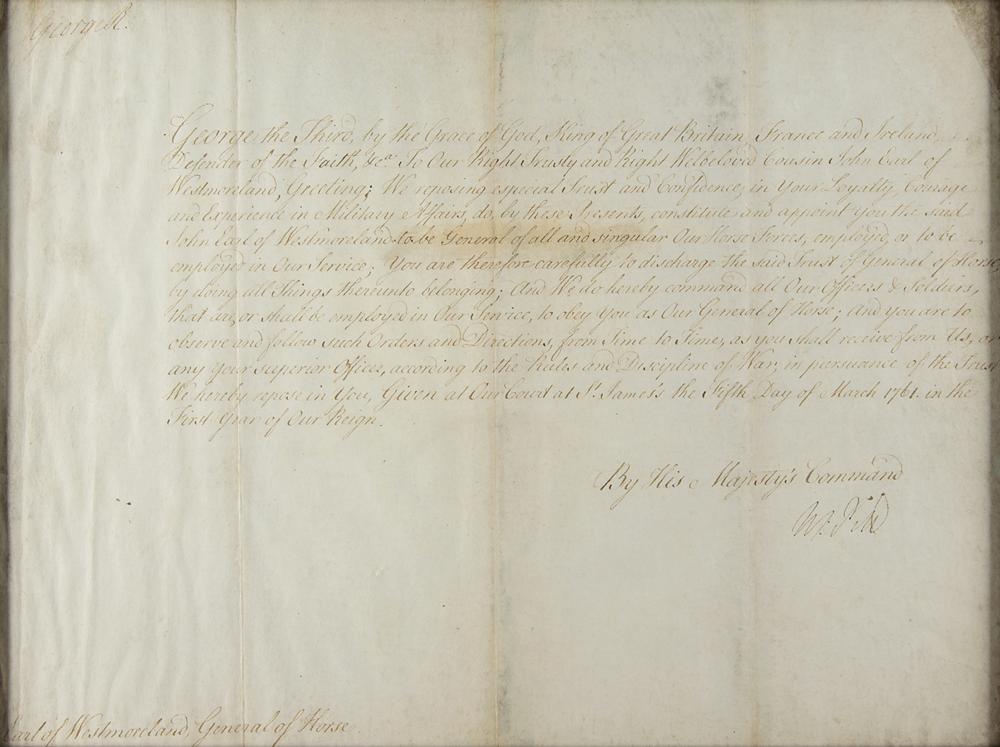 George R.
George the Third, by the Grace of God, King of Great Britain France and Ireland,
Defender of the Faith, &ca. To Our Right Trusty and Right Welbeloved Cousin John Earl of
Westmoreland, Greeting; We reposing especial Trust and Confidence, in Your Loyalty, Courage
and Experience in Military Affairs, do, by these Presents, constitute and appoint You the said
John Earl of Westmoreland to be General of all and singular Our Horse Forces, employed, or to be
employed in Our Service; You are therefore carefully to discharge the said Trust of General of Horse
by doing all Things thereunto belonging; And We do hereby command all Our Officers & Soldiers,
that are, or shall be employed in Our Service, to obey You as Our General of Horse; And you are to
observe and follow such Orders and Directions, from Time to Time, as you shall receive from Us, or
any your Superior Officer, according to the Rules and Discipline of War, in pursuance of the Trust
We hereby repose in You, Given at Our Court at St. James's the Fifth Day of March 1761. in the
First Year of Our Reign.
By His Majesty's Command
W. Pitt
Earl of Westmoreland, General of Horse